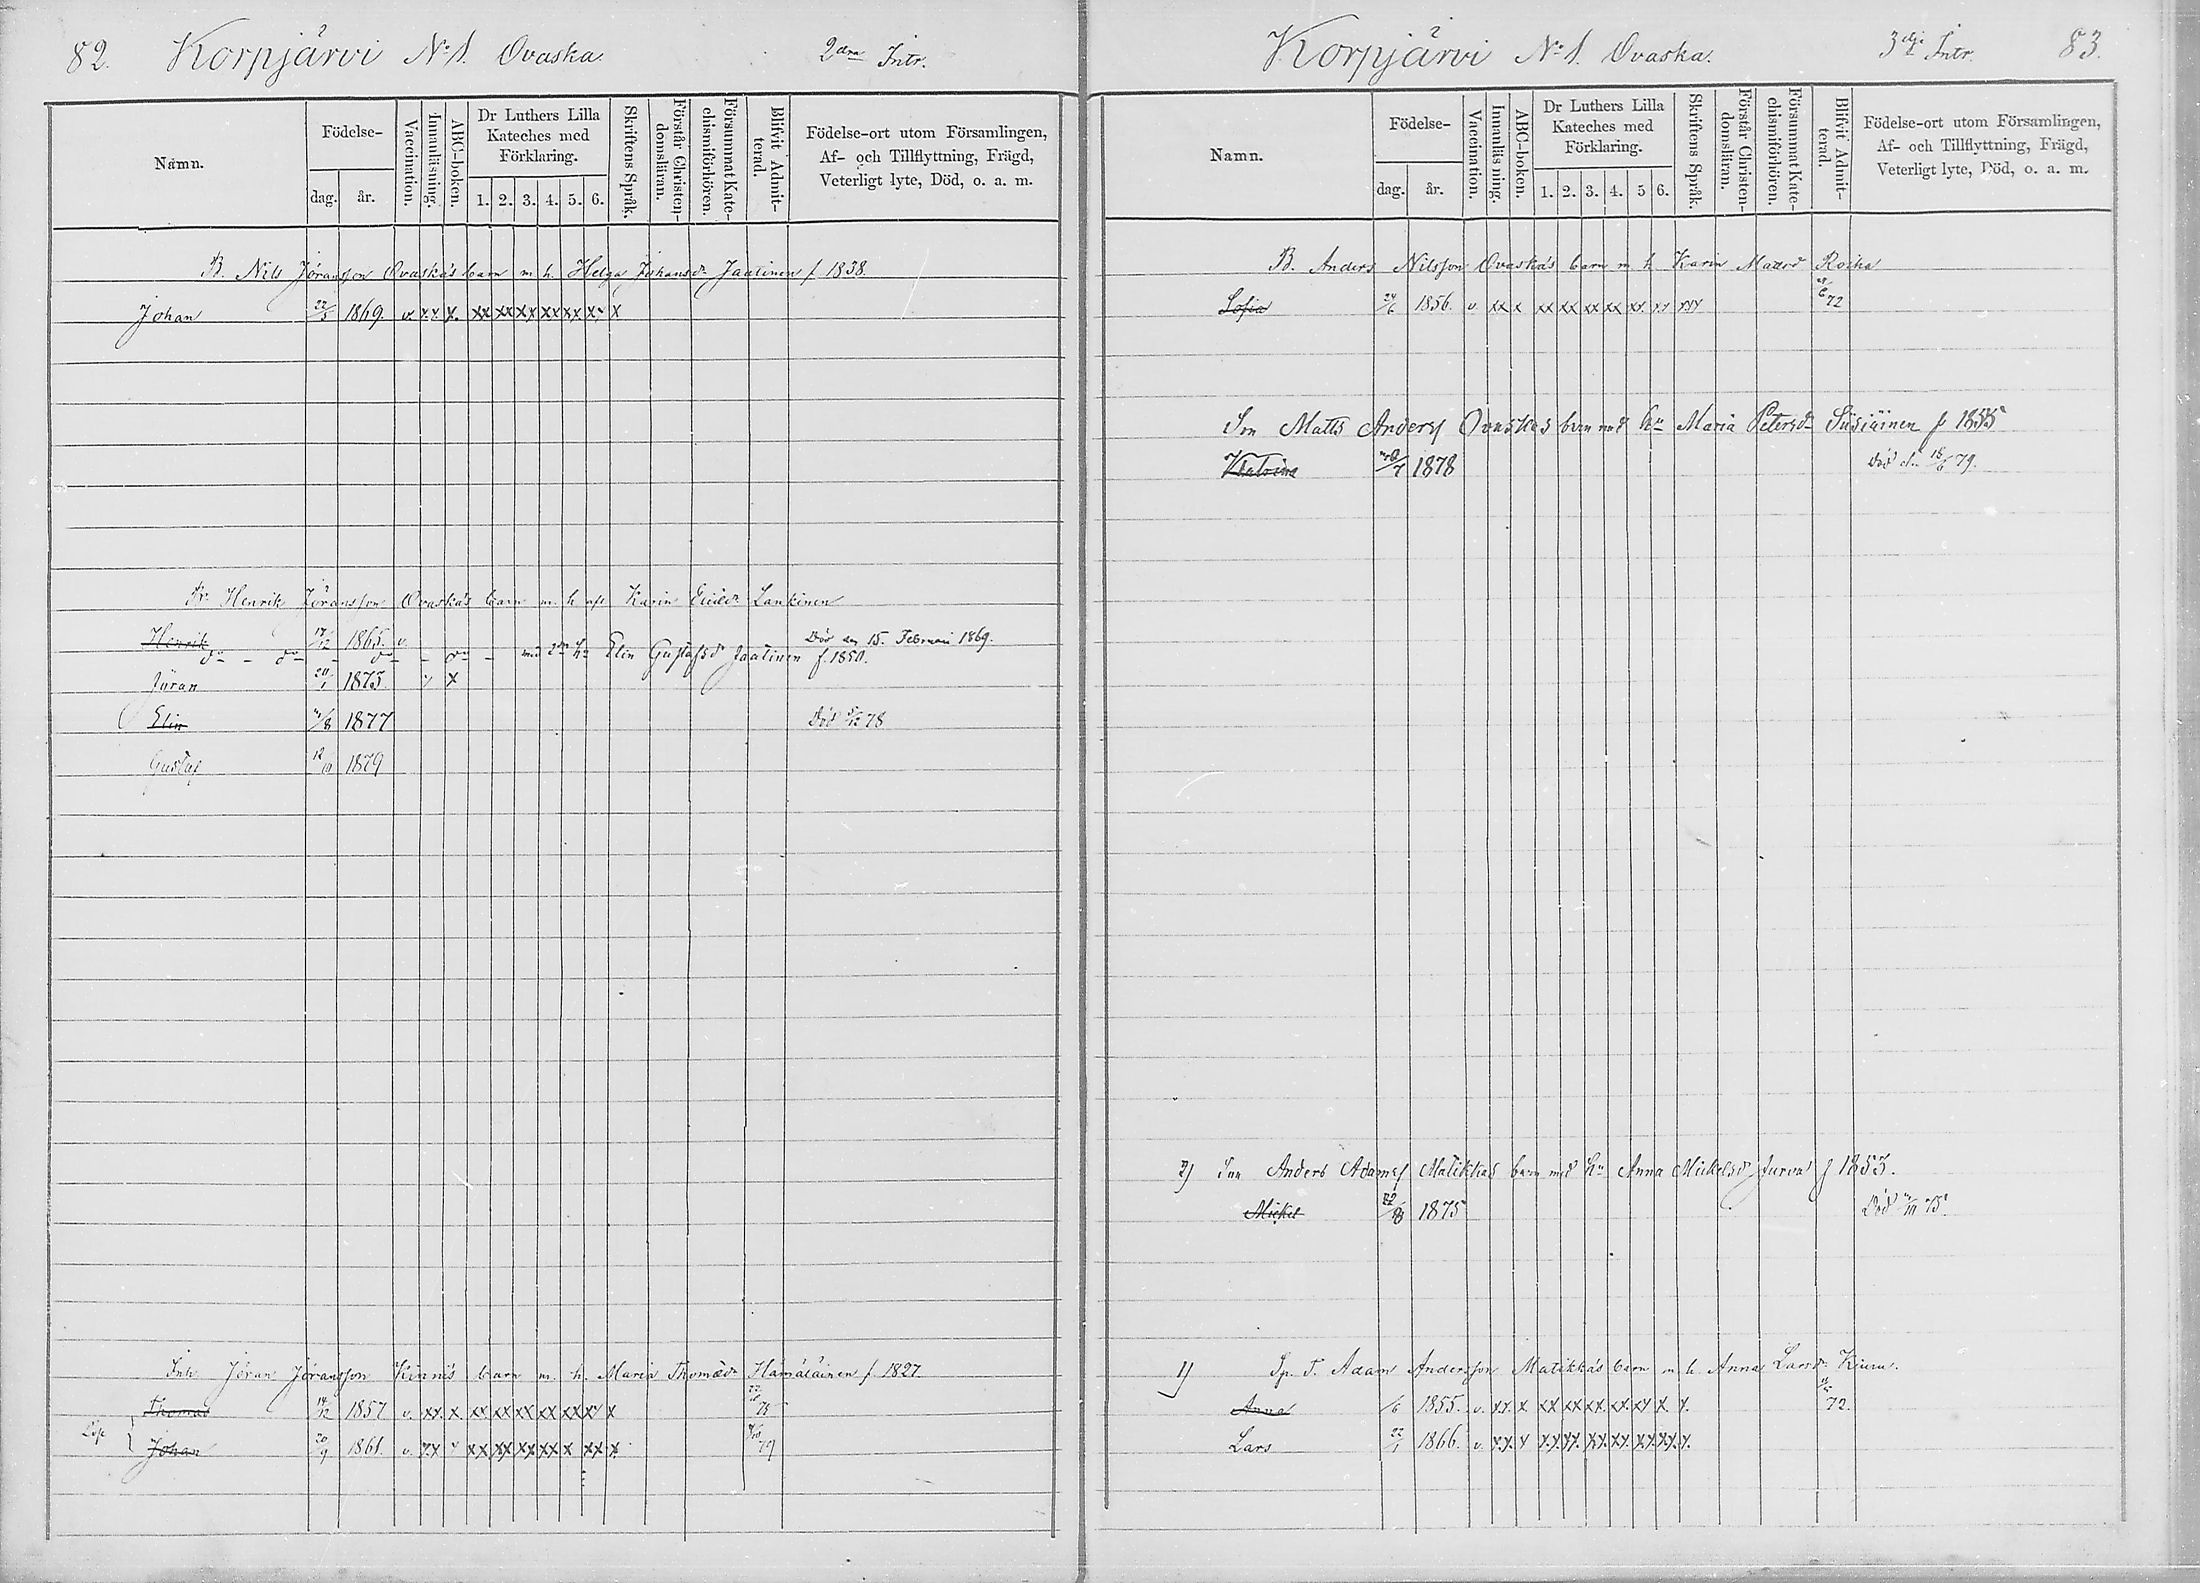 82. Korpjärvi No 1. Ovaska. 2dra Intr.
Namn.
Födelse-
dag. år.
Vaccination.
Innanläsning.
ABC-boken.
Dr Luthers Lilla Kateches med Förklaring.
1. 2. 3. 4. 5. 6.
Skriftens Språk.
Förstår Christendomsläran.
Försummat Katechismiförhören.
Blifvit Admitterad.
Födelse-ort utom Församlingen,
Af- och Tillflyttning, Frägd,
Veterligt lyte, Död, o. a. m.
B. Nils Jöransson Ovaska's barn m. h. Helga Johansdr Jaatinen f 1838.
Johan 22/5 1869. v. xx x. xx xx xx xx xx xx x
Br. Henrik Jöransson Ovaska's barn m. h. Karin Lankinen
Henrik 17/12 1865. v. Död den 15. Februari 1869.
do - do - do - do - med 2dra hu Elin Gustafsdr Jaatinen f. 1850.
Jöran 20/1 1875. x
Elin /8 1877 Död 78
Gustaf 1879
Inh. Jöran Jöransson Kinni's barn m. h. Maria Thomædr Hämäläinen f. 1827.
Thomas 14/12 1857 v. xx. x xx. xx xx xx xx xx x 78
Johan 20/9 1861. v. xx xx xx xx xx x xx x. 79
Korpjärvi No 1. Ovaska. 3dje Intr. 83.
Namn.
Födelse-
dag. år.
Vaccination.
Innanläsning.
ABC-boken.
Dr Luthers Lilla Kateches med Förklaring.
1. 2. 3. 4. 5 6.
Skriftens Språk.
Förstår Christendomsläran.
Försummat Katechismiförhören.
Blifvit Admitterad.
Födelse-ort utom Församlingen,
Af- och Tillflyttning, Frägd,
Veterligt lyte, Död, o. a. m.
B. Anders Nilsson Ovaska's barn m h Karin Matsdr Roiha
Sofia 24/6 1856. v. xx x xx xx xx xx xx xx xxx 72
Son Matts Anders Ovaskas barn med hu Maria Petersdr Susiäinen f 1855
Katrina /7 1878 Död d. 79.
2) Son Anders Adams Matikkas barn med hu Anna Mickelsdr Jurva f 1853.
Mickel 22/8 1875 Död 75.
1) Sp. T. Adam Andersson Matikka's barn m h. Anna Larsdr Kiuru.
Anna /6 1855. v. xx. x xx xx xx. xx. xx x. x. 72.
Lars 22/1 1866. v. xx. x xx. xx. xx. xx. xx. xx. x.